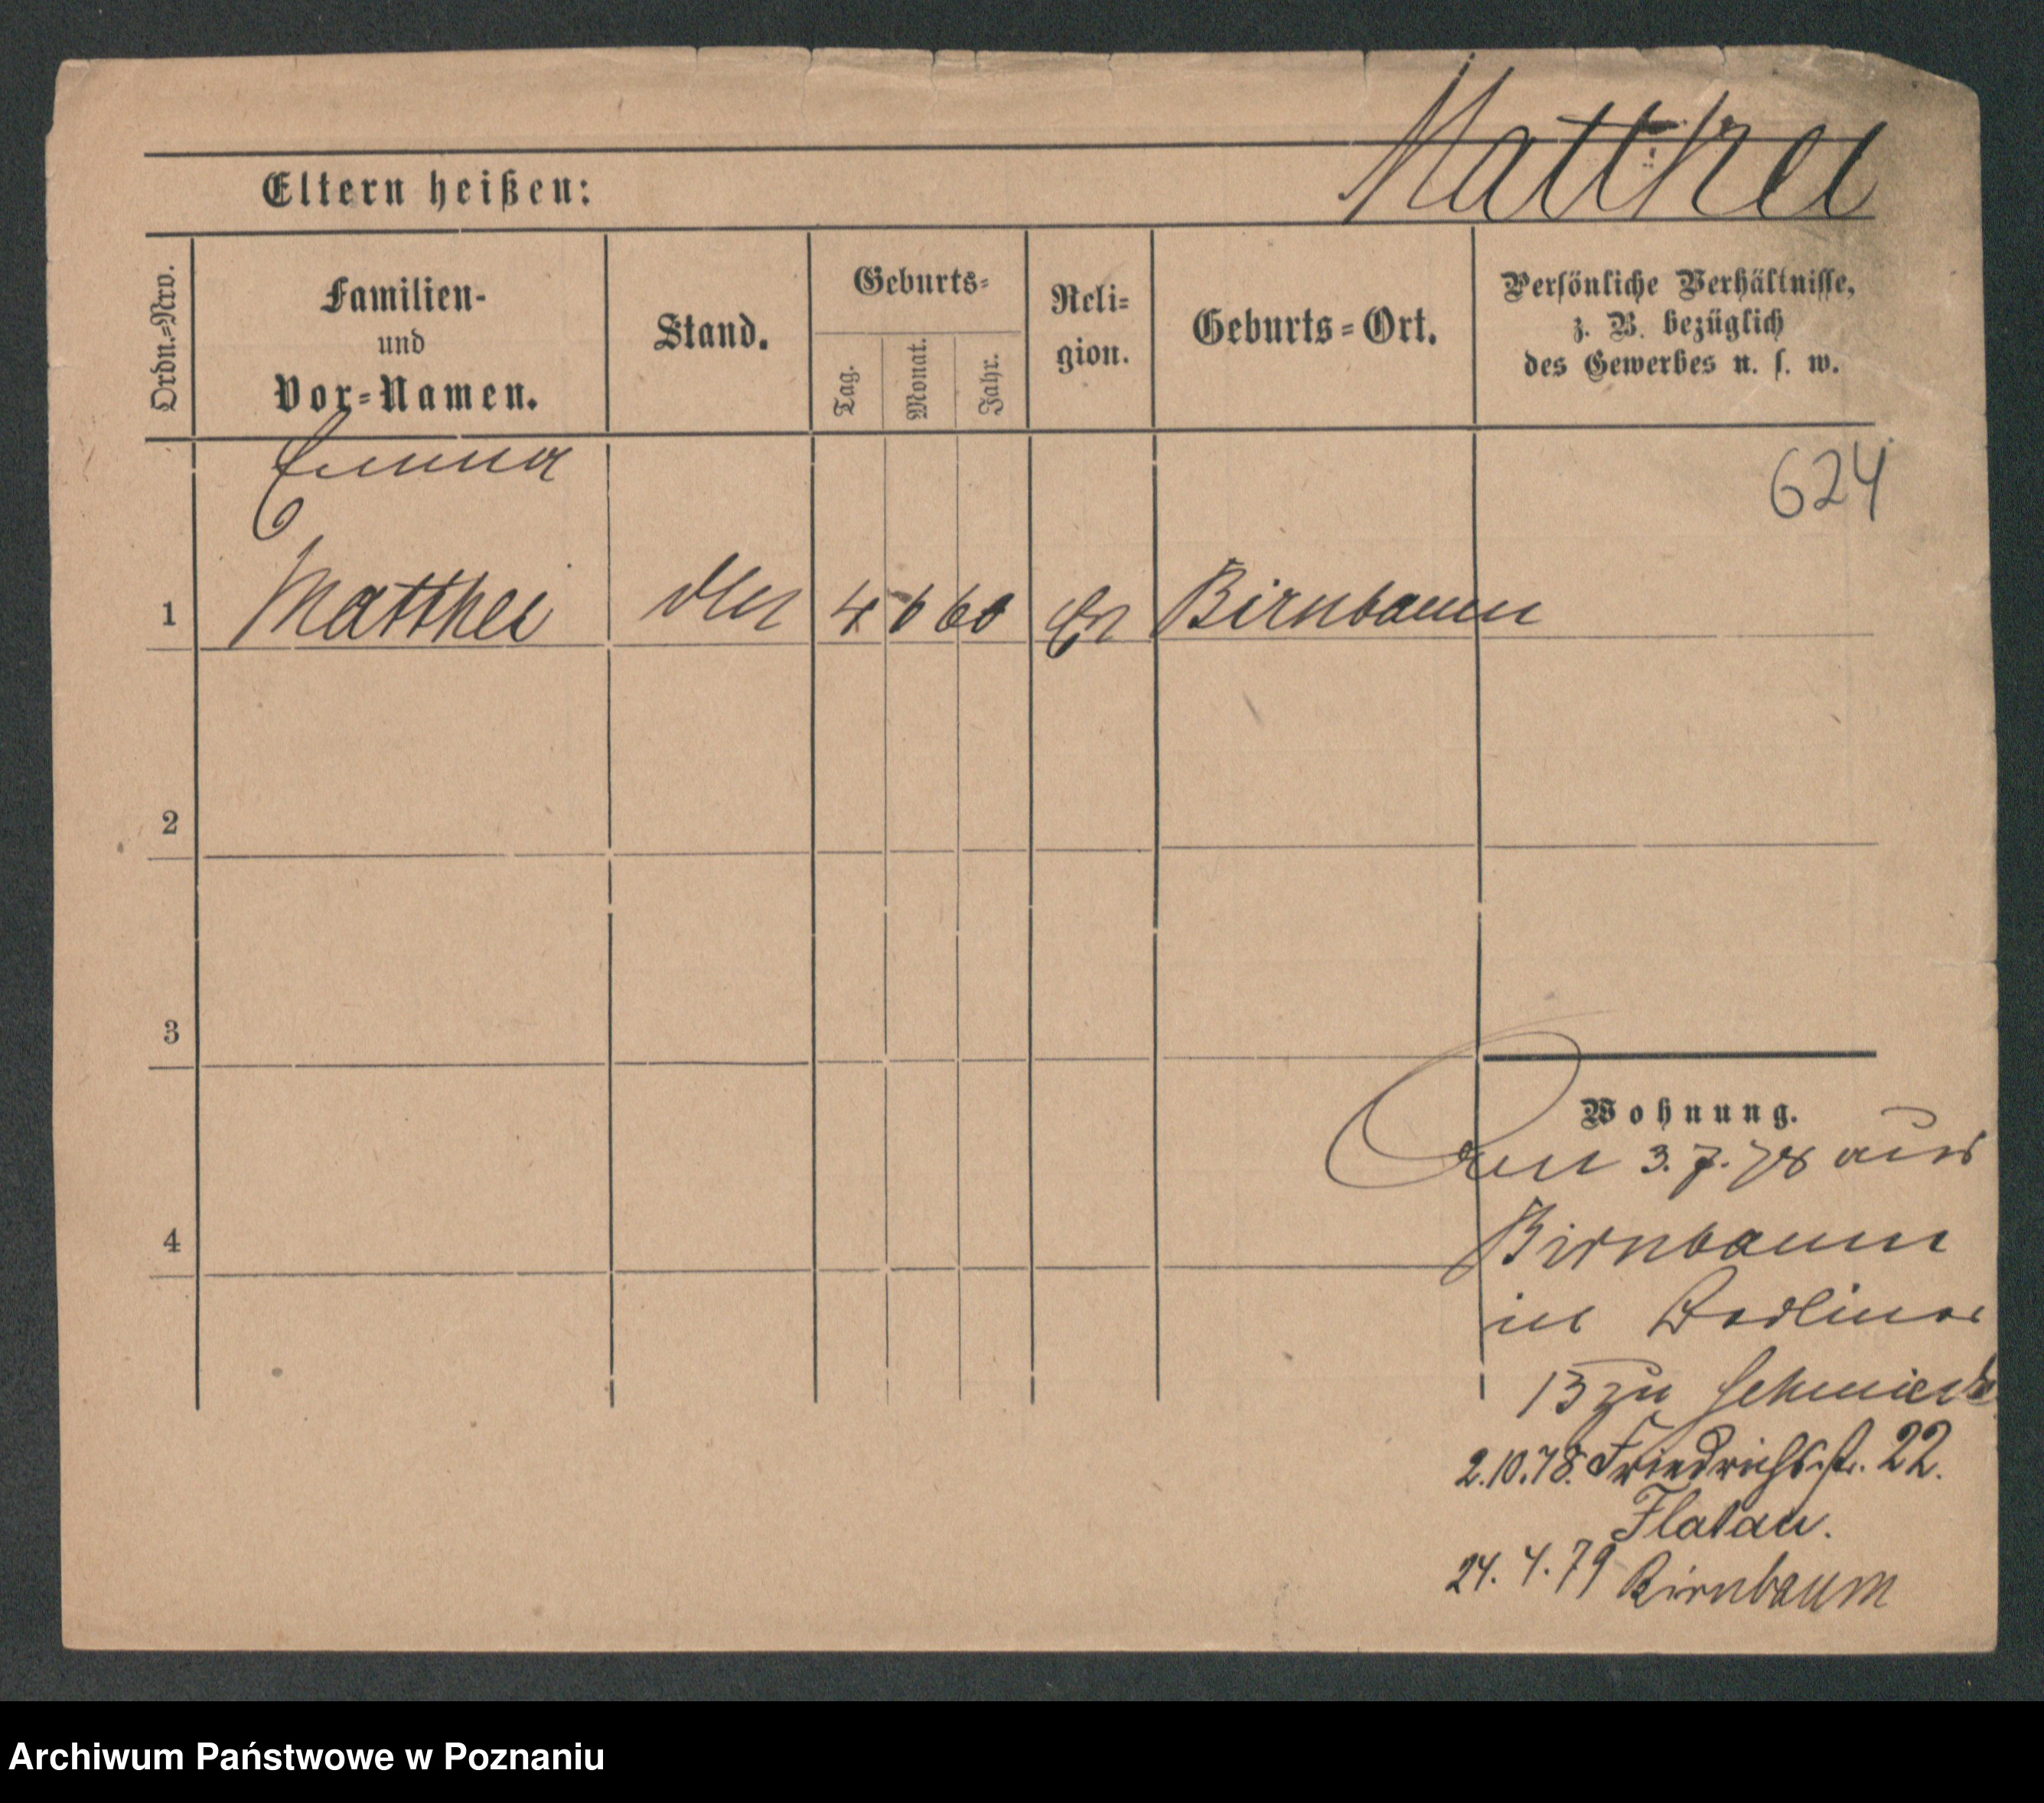 Matthei
Eltern heißen:
Ordn.-Nro.
Familien-
und
Vor-Namen.
Stand.
Geburts-
Tag.
Monat.
Jahr.
Reli-
gion.
Geburts-Ort.
Persönliche Verhältnisse,
z. B. bezüglich
des Gewerbes u. s. w.
624
Emma
1 Matthei 4 6 60 Ev Birnbaum
2
3
4
Wohnung.
3.7.78 aus
Birnbaum
in
13 zu
2.10.78. Friedrichsstr. 22.
Flatau.
24. 4. 79 Birnbaum
Archiwum Państwowe w Poznaniu